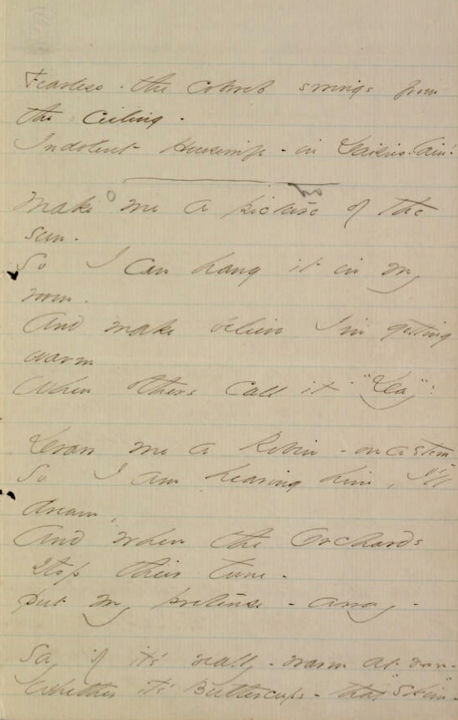 Fearless - the cobweb swings from
the Ceiling -
Indolent Housewife - in Daisies - lain!
Make me a picture of the
sun -
So I can hang it in my
room.
And make believe I'm getting
warm
When others call it "Day"!
Draw me a Robin - on a stem
So I am hearing him, I'll
dream,
And when the Orchards
stop their tune -
Put my pretense - away -
Say if it's really - warm at noon -
Whether it's Buttercups - that "skim" -